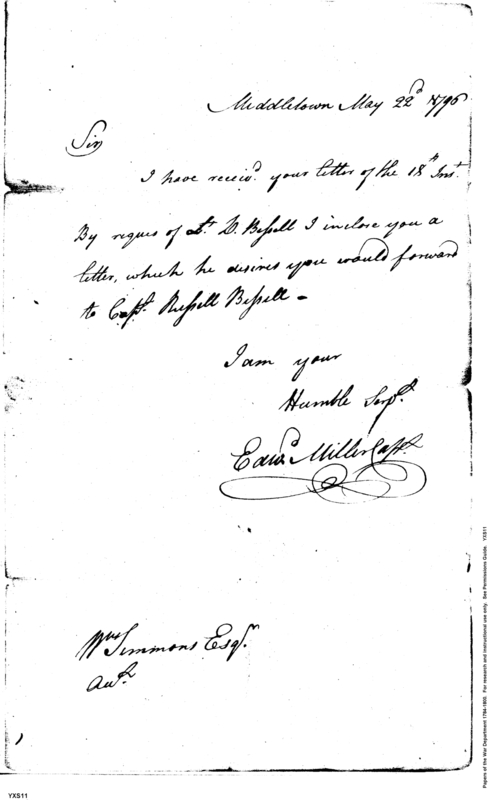 Middletown May 22d 1796
Sir
I have receivd. your letter of the 18th Inst.
By reques of Lt. D. Bissell I inclose you a
letter, which he desires you would forward
to Capt. Russell Bissell -
I am your
Humble Servt.
Edwd. Miller Capt.
Wm Simmons Esqr.
Acct.
YXS11
Papers of the War Department 1784-1800. For research and instructional use only. See Permissions Guide. YXS11